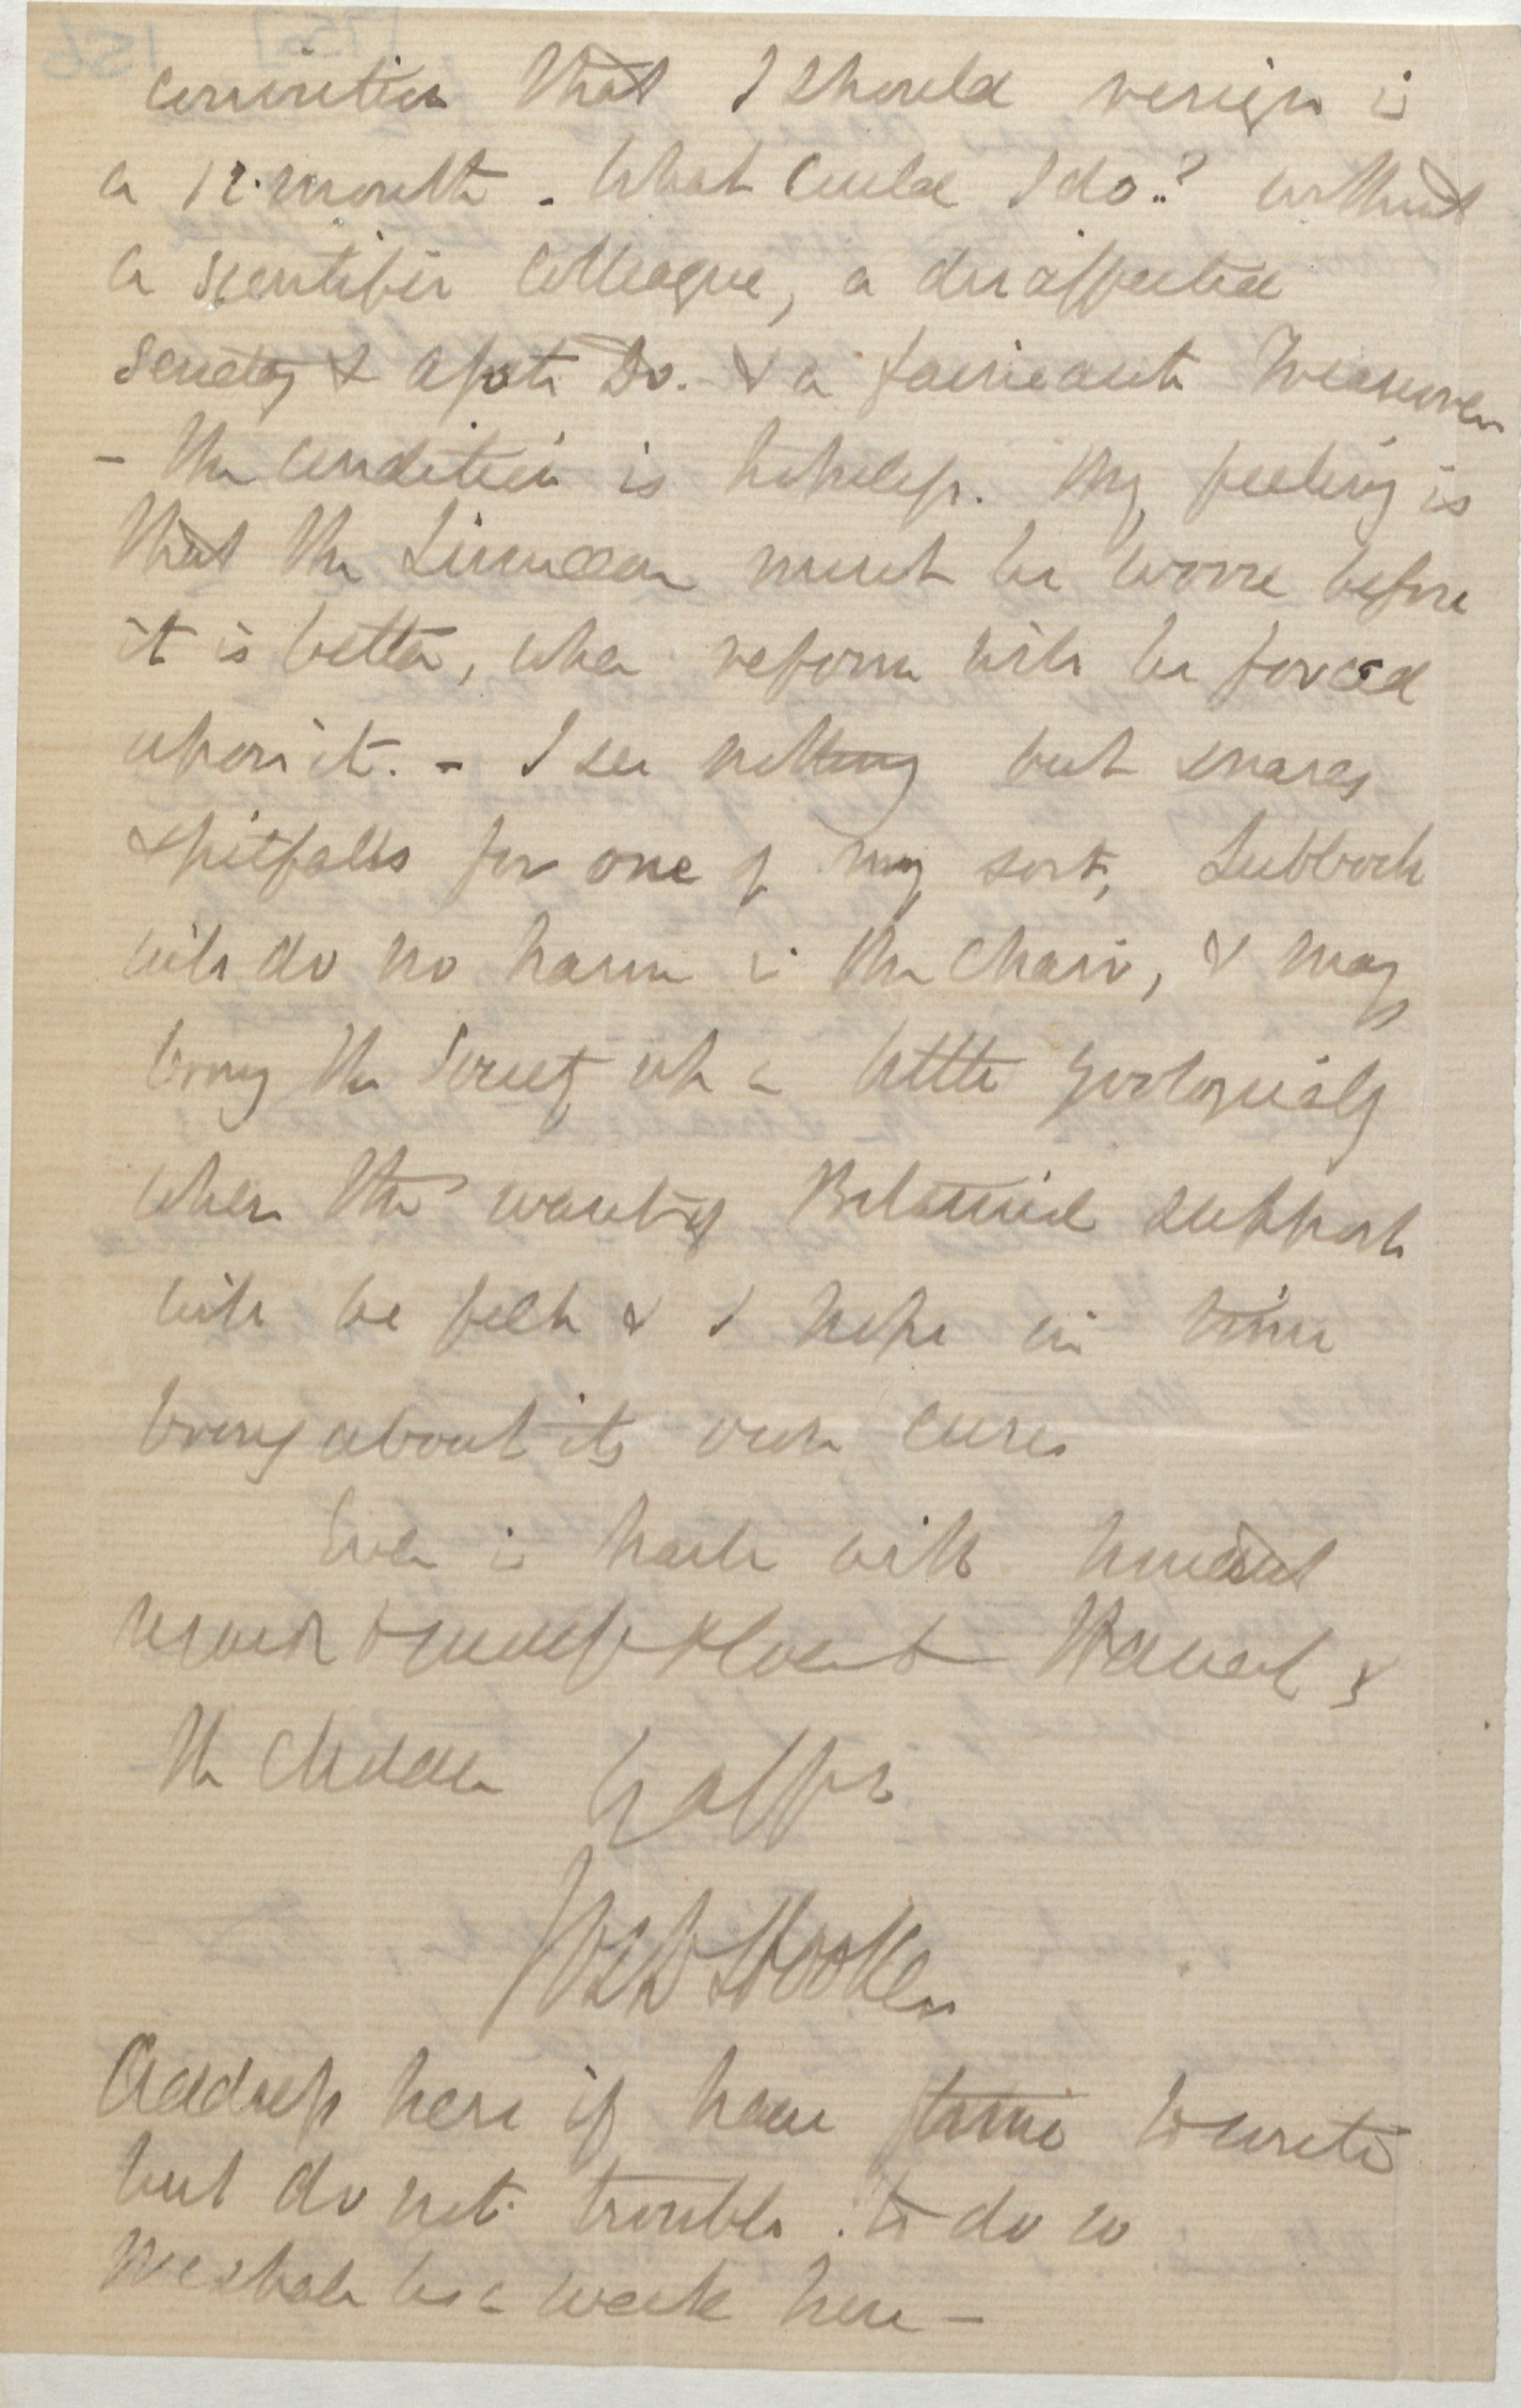 conviction that I should resign in
a 12. month. What could I do? without
a scientific colleague, a disaffected
Secretary & Asst. Do. & a faineant Treasurer
- The condition is hopeless. My feeling is
that the Linnean must be worse before
it is better, when reform will be forced
upon it. - I see nothing but snares
& pitfalls for one of my sort, Lubbock
will do no harm in the chair, & may
bring the Society up a little Zoologically
when the want of Botanical support
will be felt & I hope in time
bring about its own cure.
Ever in haste with kindest
& the
the children
Jos D Hooker
Address here if have time to write
but do not trouble to do so
We shall be a week here -